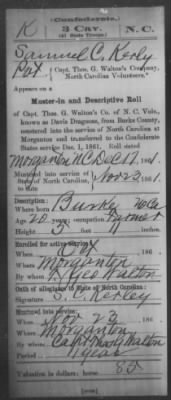 (Confederate.)
K 3 Cav. N. C.
(41 State Troops.)
Samuel C. Kerley
Pvt., Capt. Thos. G. Walton's Company,
North Carolina Volunteers.*
Appears on a
Muster-in and Descriptive Roll
of Capt. Thos. G. Walton's Co. of N. C. Vols.,
known as Davis Dragoons, from Burke County,
mustered into the service of North Carolina at
Morganton and transferred to the Confederate
States service Dec. 1, 1861. Roll dated
Morganton, N.C. Dec 17, 1861.
Mustered into service of
State of North Carolina, Nov 23, 1861.
to date
Description:
Where born Burke N.C.
Age 20 years; occupation Farmer
Height 5 feet 11 inches.
Enrolled for active service:
When Oct, 186
Where Morganton
By whom Walton
Oath of allegiance to State of North Carolina:
Signature S. C. Kerley
Mustered into service:
When Nov 23, 186
Where Morganton
By whom Capt Walton
Period 1 year
Valuation in dollars: horse 85